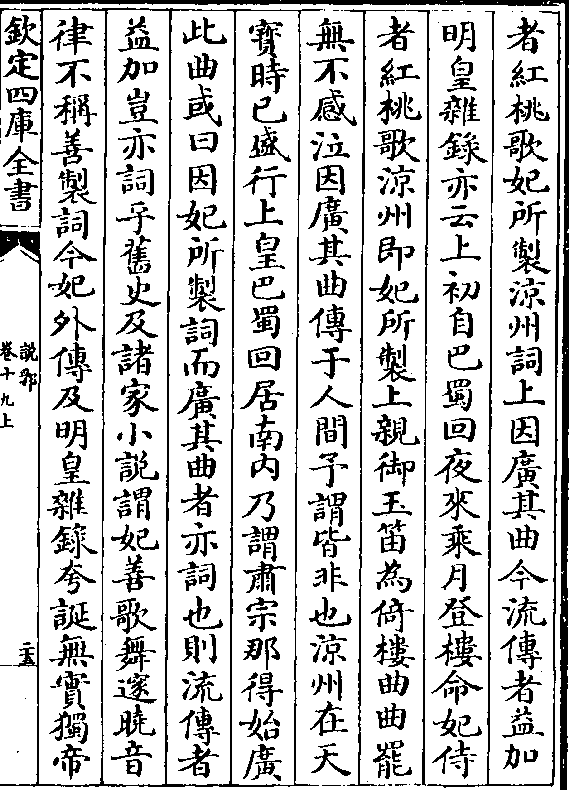 者紅桃歌妃所製涼州詞上因廣其曲今流傳者益加
明皇雜錄亦云上初自巴蜀回夜來乘月登樓命妃侍
者紅桃歌涼州即妃所製上親御玉笛為倚樓曲曲罷
無不感泣因廣其曲傳于人間予謂皆非也涼州在天
寳時已盛行上皇巴蜀回居南内乃謂肅宗那得始廣
此曲或曰因妃所製詞而廣其曲者亦詞也則流傳者
益加豈亦詞乎舊史及諸家小說謂妃善歌舞邃曉音
律不稱善製詞今妃外傳及明皇雜錄夸誕無實獨帝
欽定四庫全書
說郛
卷十九上
二十五